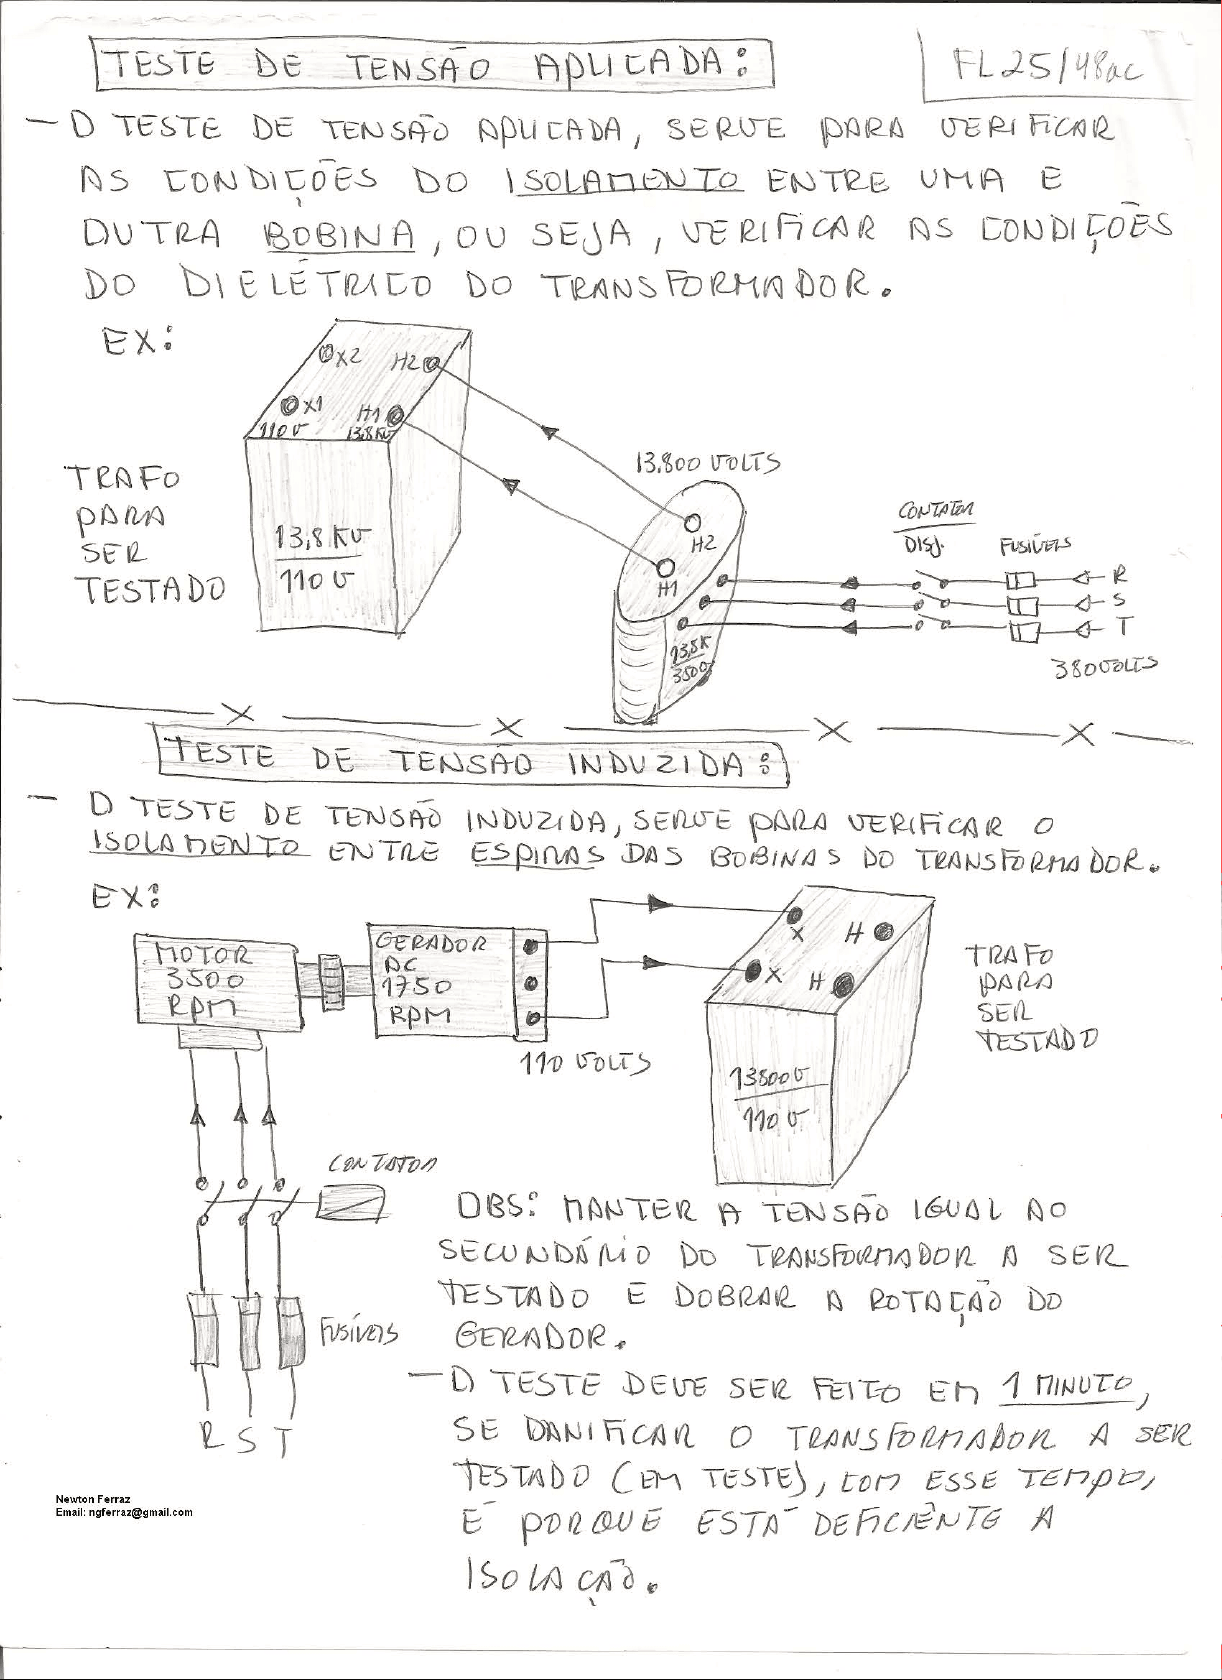 TESTE DE TENSÃO APLICADA:
FL25/48ac
- O TESTE DE TENSÃO APLICADA, SERVE PARA VERIFICAR
AS CONDIÇÕES DO ISOLAMENTO ENTRE UMA E
OUTRA BOBINA, OU SEJA, VERIFICAR AS CONDIÇÕES
DO DIELÉTRICO DO TRANSFORMADOR.
EX:
X2
H2
X1
H1
110V
13.8KV
TRAFO
PARA
SER
TESTADO
13,8 KV
110 V
13.800 VOLTS
H2
H1
13,8K
CONTATOR
DISJ.
FUSÍVEIS
R
S
T
380 VOLTS
TESTE DE TENSÃO INDUZIDA:
- O TESTE DE TENSÃO INDUZIDA, SERVE PARA VERIFICAR O
ISOLAMENTO ENTRE ESPIRAS DAS BOBINAS DO TRANSFORMADOR.
EX:
MOTOR
3500
RPM
GERADOR
AC
1750
RPM
110 VOLTS
X
H
X
H
13800V
110 V
TRAFO
PARA
SER
TESTADO
CONTATOR
FUSÍVEIS
R S T
OBS: MANTER A TENSÃO IGUAL AO
SECUNDÁRIO DO TRANSFORMADOR A SER
TESTADO E DOBRAR A ROTAÇÃO DO
GERADOR.
- O TESTE DEVE SER FEITO EM 1 MINUTO,
SE DANIFICAR O TRANSFORMADOR A SER
TESTADO (EM TESTE), COM ESSE TEMPO,
É PORQUE ESTÁ DEFICIÊNTE A
ISOLAÇÃO.
Newton Ferraz
Email: ngferraz@gmail.com